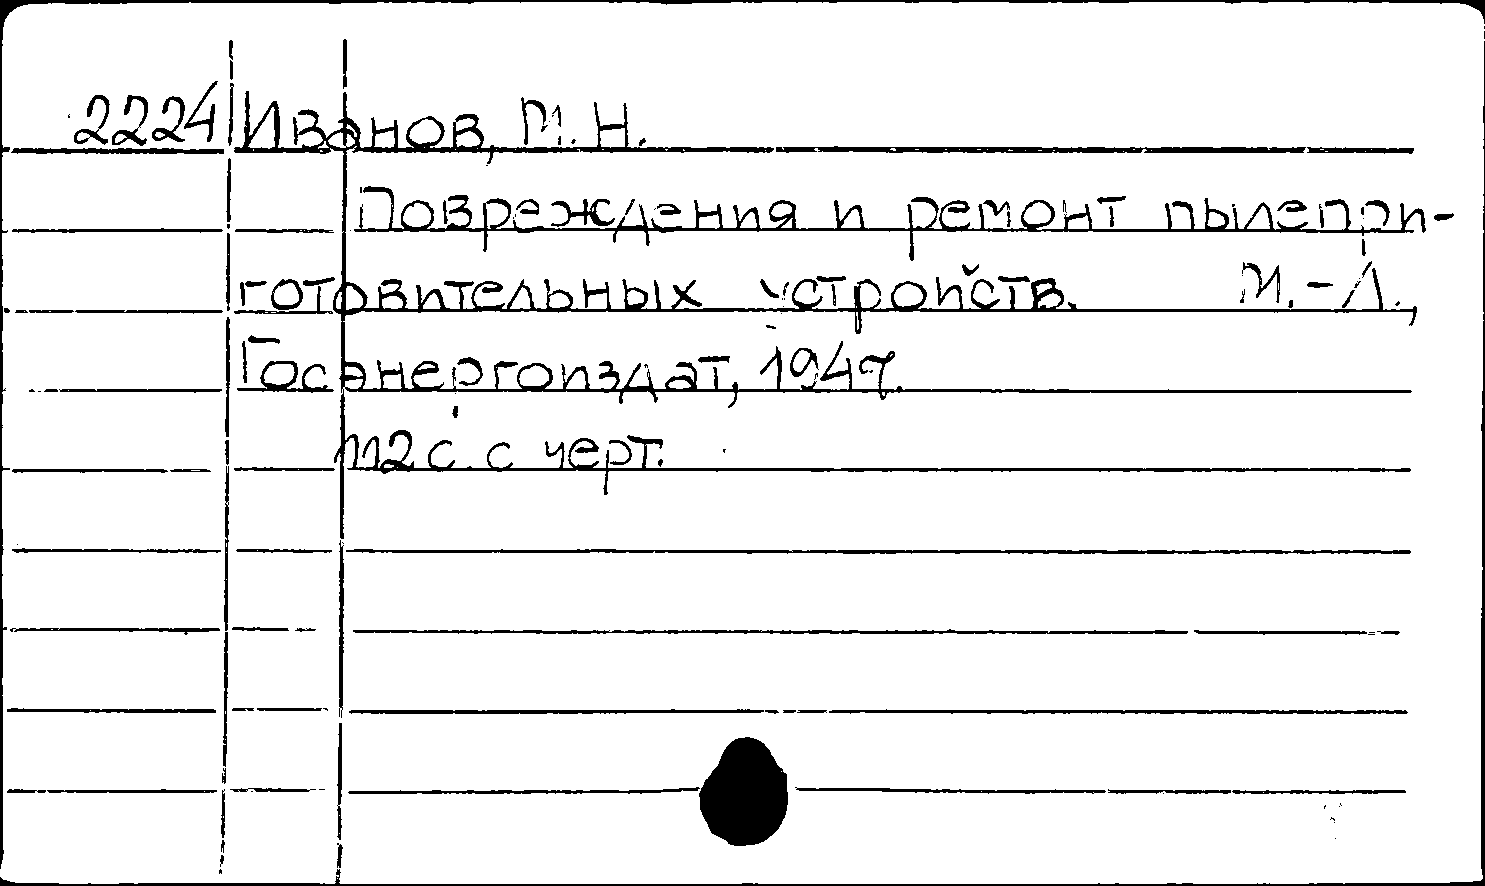 2224 Иванов, М. Н.
Повреждения и ремонт пылепри-
готовительных устройств. М.-Л.,
Госэнергоиздат, 1947.
112 с. с черт.